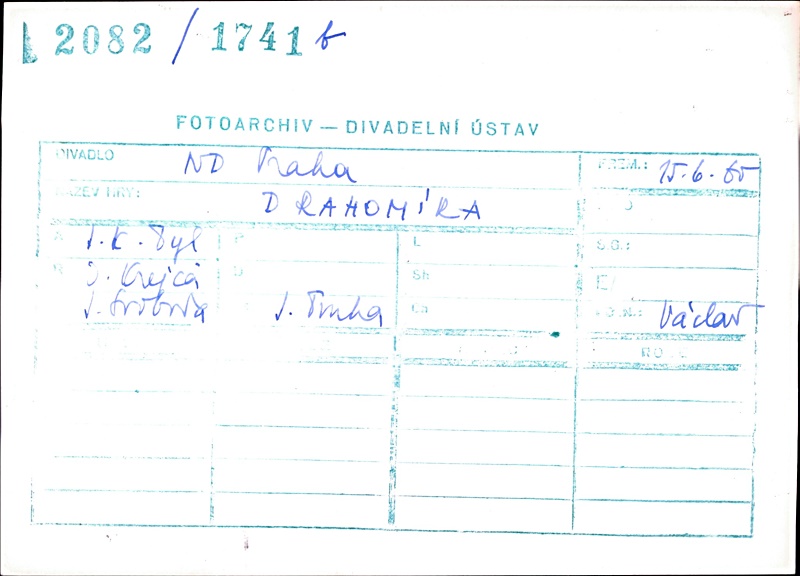 2082 / 1741 b
FOTOARCHIV — DIVADELNÍ ÚSTAV
DIVADLO ND Praha PREM.: 15.6.60
NÁZEV HRY: DRAHOMÍRA
A J. K. Tyl P L S.G.:
R O. Krejča Sh E/
J. Svoboda Ch Václav